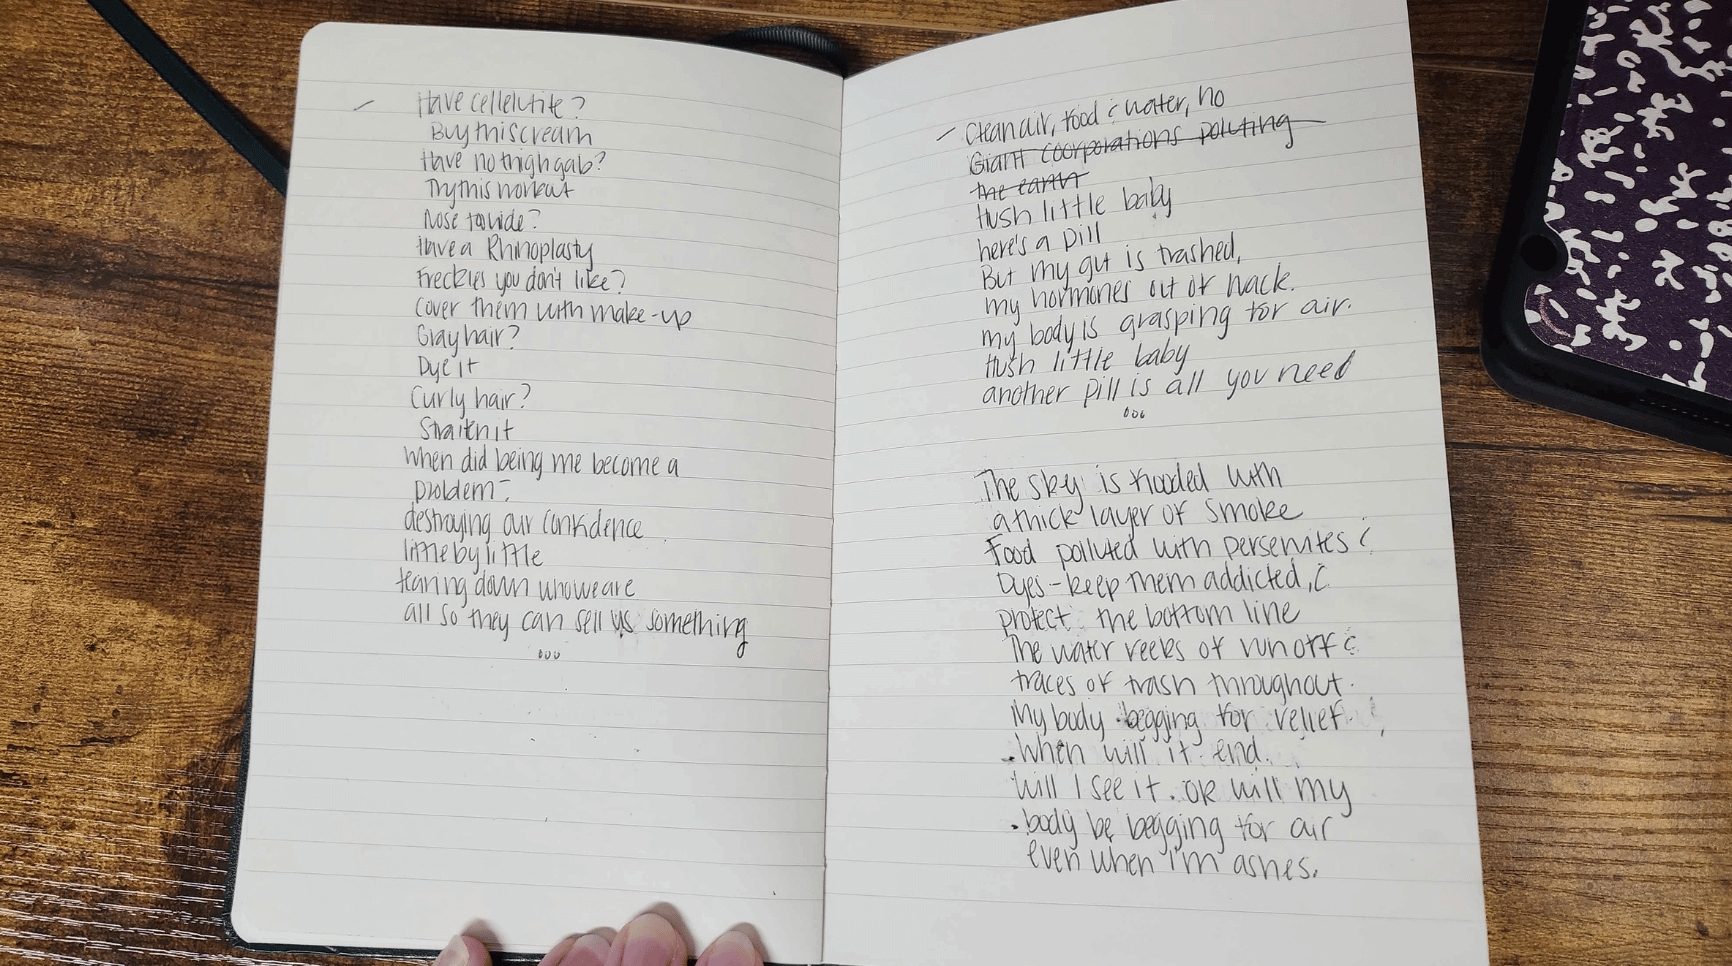 Have cellelutite?
Buy this cream
Have no thigh gab?
Try this workout
Nose to wide?
Have a Rhinoplasty
Freckles you don't like?
Cover them with make-up
Gray hair?
Dye it
Curly hair?
Straitn it
When did being me become a
problem?
destroying our confidence
little by little
tearing down who we are
all so they can sell us something
Clean air, food & water, no
Giant coorporations poluting
the earth
Hush little baby
here's a pill
But my gut is trashed,
my hormones out of wack.
my body is grasping for air.
Hush little baby
another pill is all you need
The sky is flooded with
a thick layer of smoke
Food polluted with &
Dyes - keep them addicted, &
protect the bottom line
The water reeks of run off &
traces of trash throughout.
My body begging for relief.
When will it end.
Will I see it. OR will my
body be begging for air
even when I'm ashes.